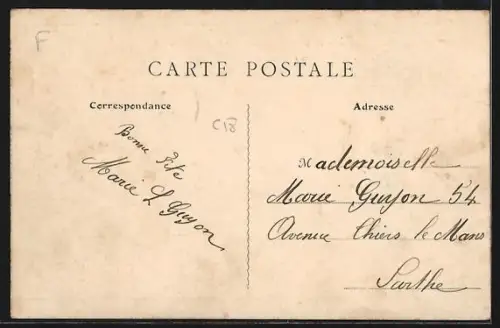 F
CARTE POSTALE
Correspondance
C18
Bonne Fête
Marie L Guyon
Adresse
Mademoiselle
Marie Guyon 54
Avenue Thiers le Mans
Sarthe